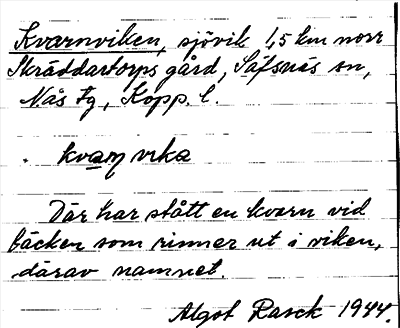 Kvarnviken, sjövik 1,5 km norr
Skräddartorps gård, Säfsnäs sn,
Nås fg, Kopp. l.
kvaɳ vika
Där har stått en kvarn vid
bäcken som rinner ut i viken,
därav namnet.
Algot Rasck 1944.